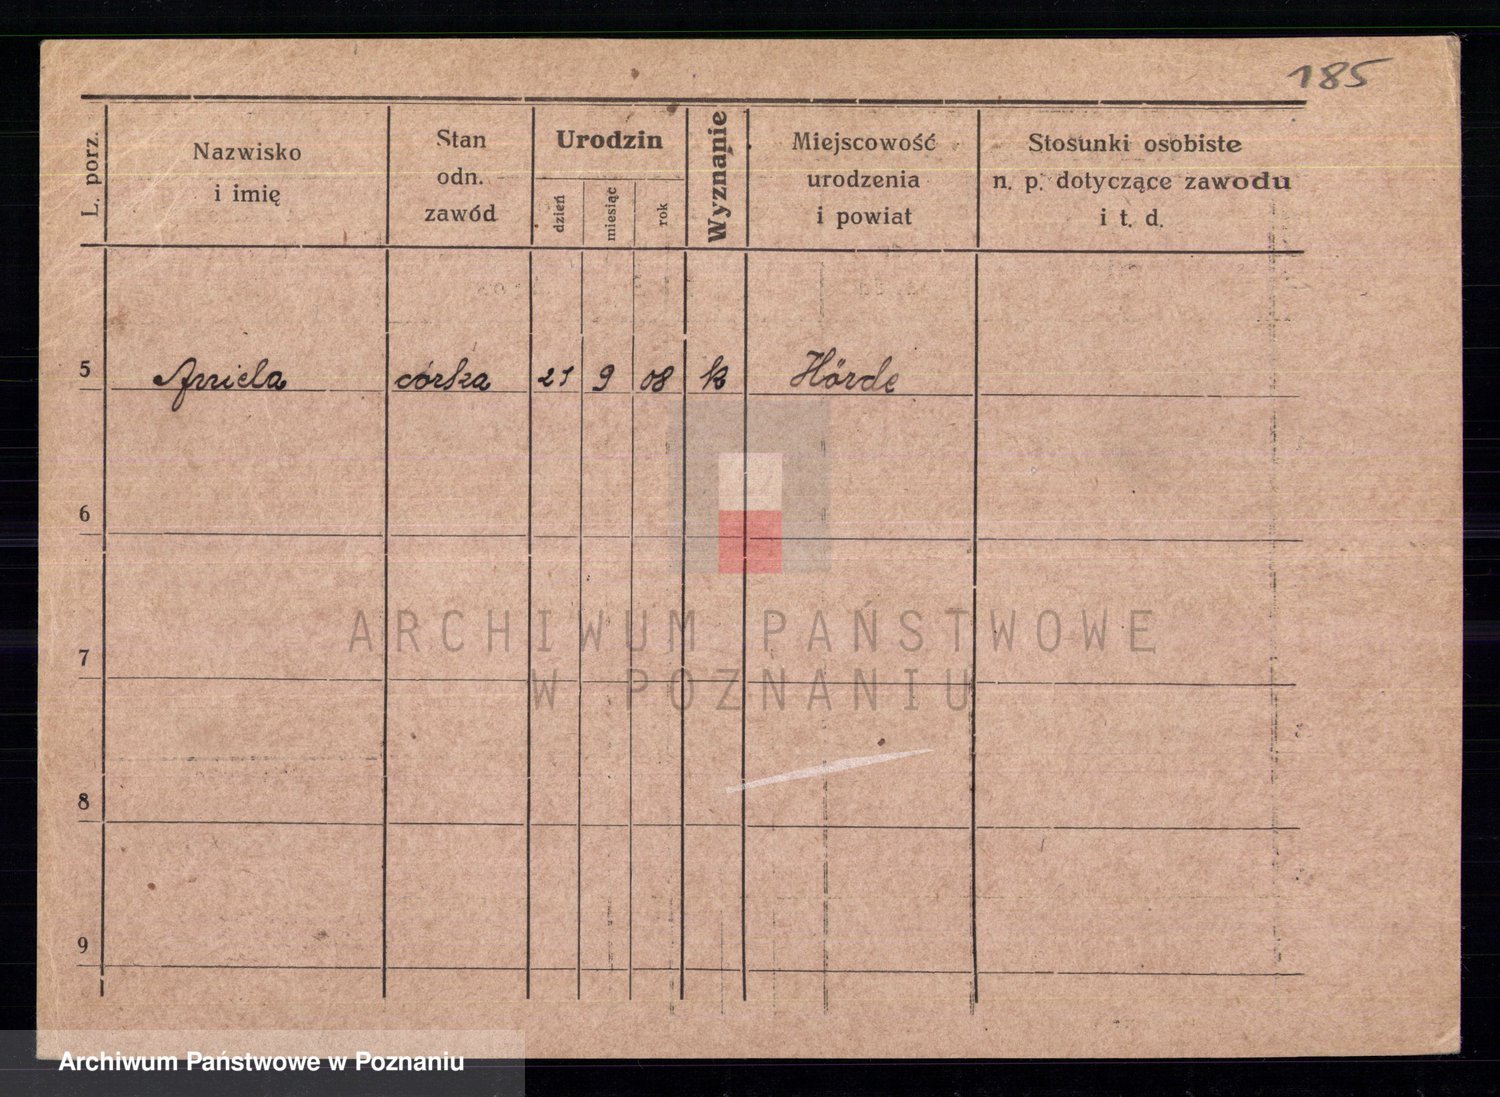 185
L. porz.
Nazwisko
i imię
Stan
odn.
zawód
Urodzin
dzień
miesiąc
rok
Wyznanie
Miejscowość
urodzenia
i powiat
Stosunki osobiste
n. p. dotyczące zawodu
i t. d.
5 Aniela córka 21 9 08 k Hörde
6
7
8
9
ARCHIWUM PAŃSTWOWE
W POZNANIU
Archiwum Państwowe w Poznaniu